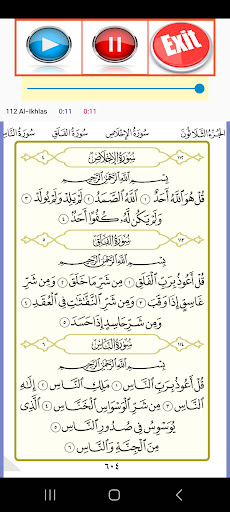 Exit
112 Al-Ikhlas 0:11 0:11
الجزء الثلاثون سورة الإخلاص سورة الفلق سورة الناس
١١٢ سُورَةُ الإِخْلَاصِ ٤
بِسْمِ اللَّهِ الرَّحْمَٰنِ الرَّحِيمِ
قُلْ هُوَ اللَّهُ أَحَدٌ ١ اللَّهُ الصَّمَدُ ٢ لَمْ يَلِدْ وَلَمْ يُولَدْ ٣
وَلَمْ يَكُن لَّهُ كُفُوًا أَحَدٌ ٤
١١٣ سُورَةُ الْفَلَقِ ٥
بِسْمِ اللَّهِ الرَّحْمَٰنِ الرَّحِيمِ
قُلْ أَعُوذُ بِرَبِّ الْفَلَقِ ١ مِن شَرِّ مَا خَلَقَ ٢ وَمِن شَرِّ
غَاسِقٍ إِذَا وَقَبَ ٣ وَمِن شَرِّ النَّفَّاثَاتِ فِي الْعُقَدِ ٤
وَمِن شَرِّ حَاسِدٍ إِذَا حَسَدَ ٥
١١٤ سُورَةُ النَّاسِ ٦
بِسْمِ اللَّهِ الرَّحْمَٰنِ الرَّحِيمِ
قُلْ أَعُوذُ بِرَبِّ النَّاسِ ١ مَلِكِ النَّاسِ ٢ إِلَٰهِ
النَّاسِ ٣ مِن شَرِّ الْوَسْوَاسِ الْخَنَّاسِ ٤ الَّذِي
يُوَسْوِسُ فِي صُدُورِ النَّاسِ ٥
مِنَ الْجِنَّةِ وَالنَّاسِ ٦
٦٠٤